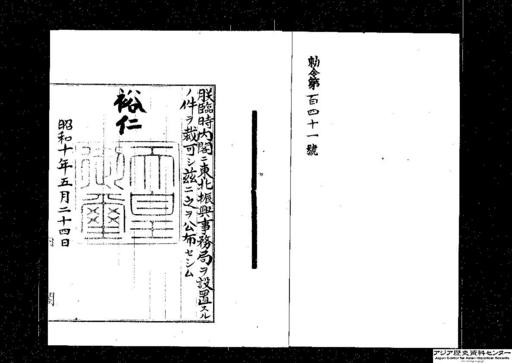 勅令第百四十一號
朕臨時內閣ニ東北振興事務局ヲ設置スル
ノ件ヲ裁可シ茲ニ之ヲ公布セシム
裕仁
昭和十年五月二十四日
閣
アジア歴史資料センター
Japan Center for Asian Historical Records